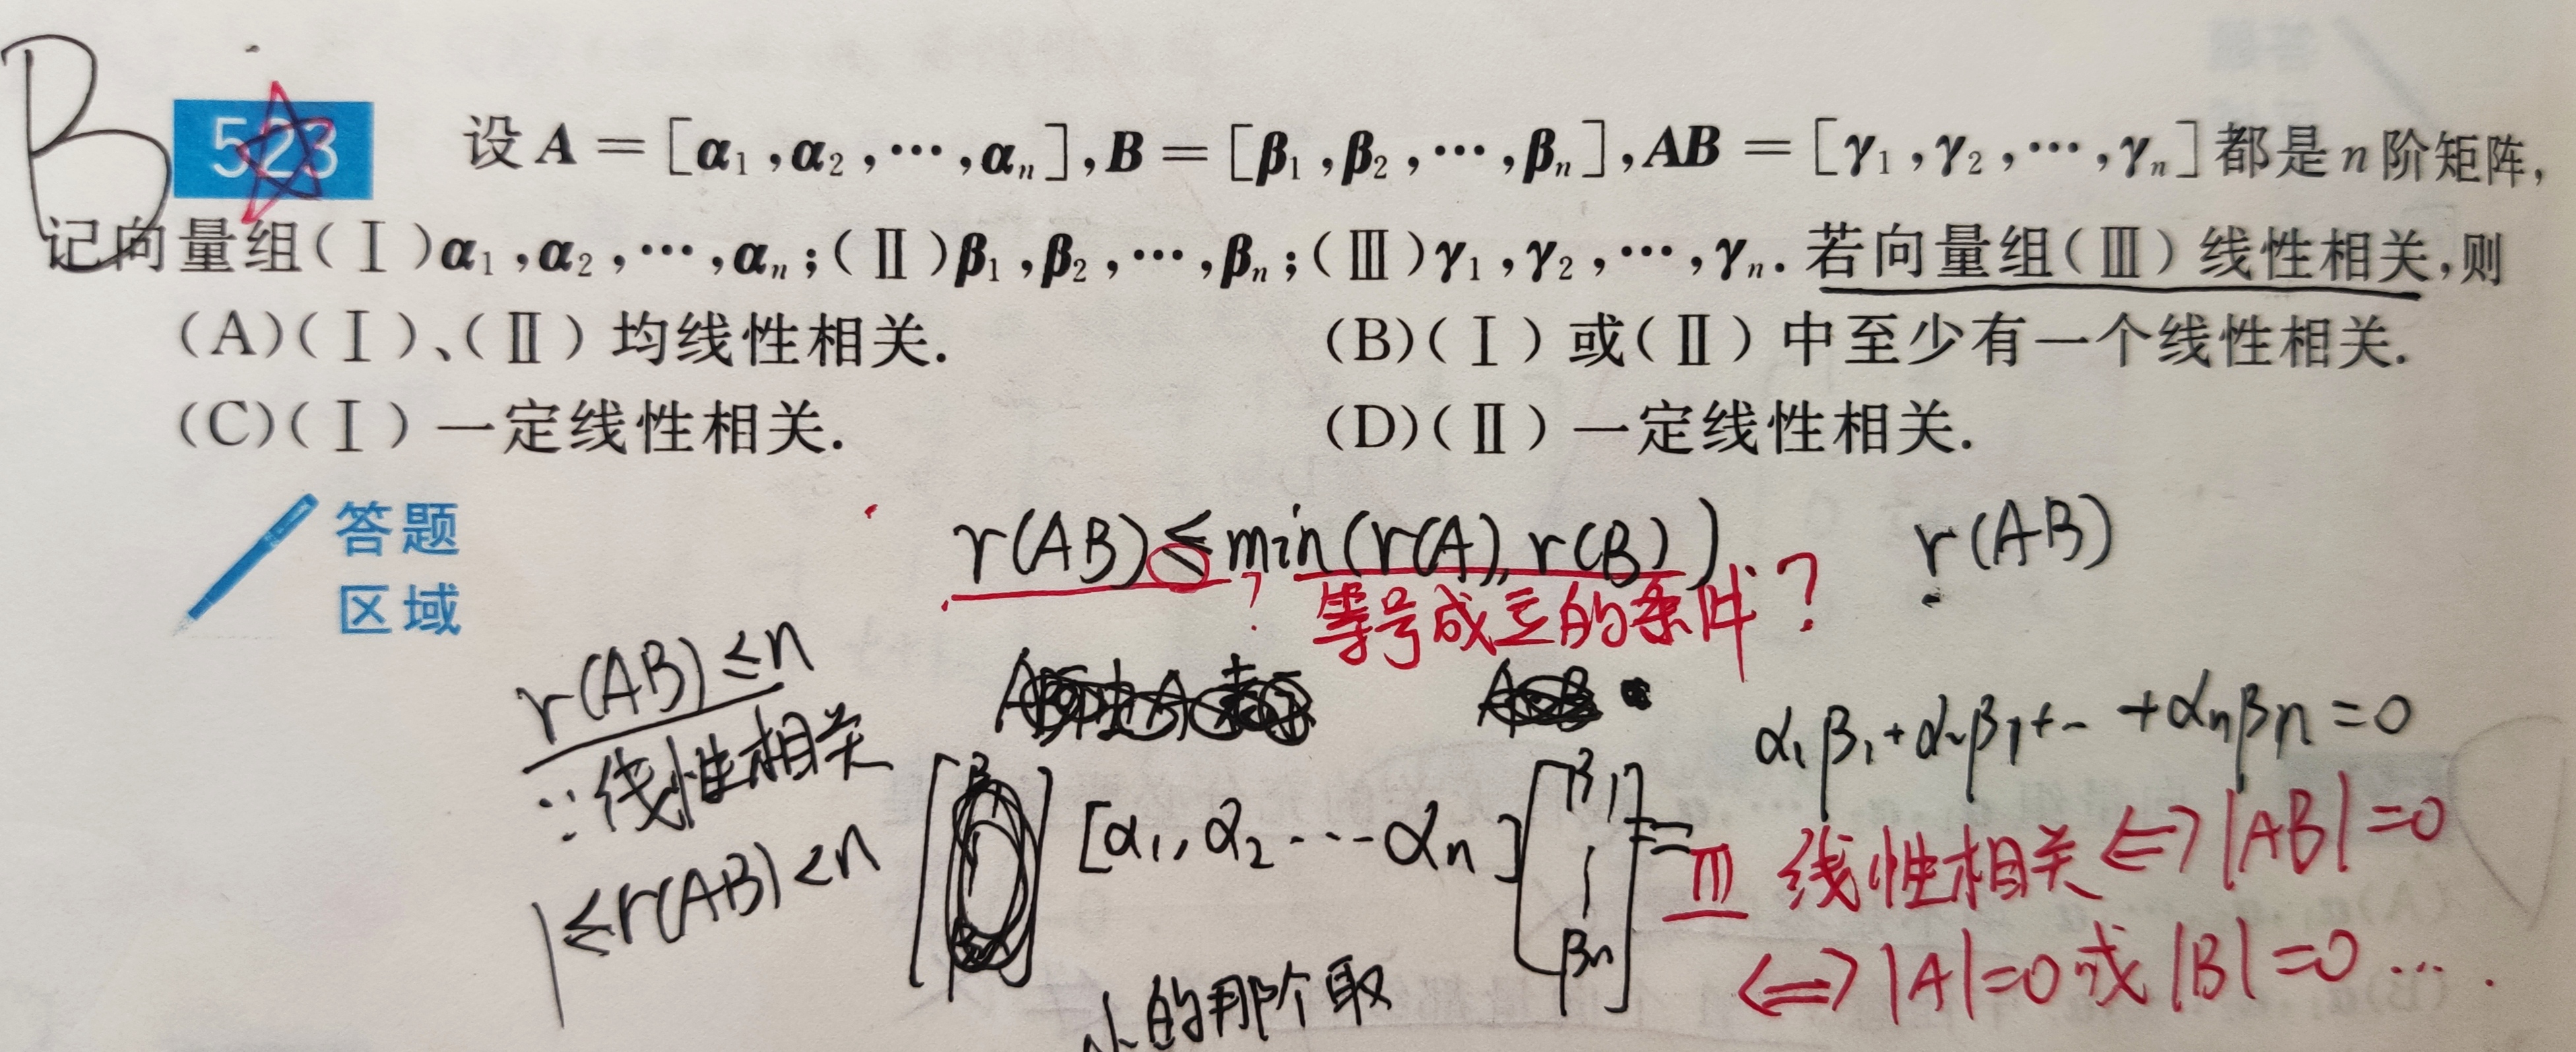 B
523 设A=[α₁,α₂,⋯,αₙ],B=[β₁,β₂,⋯,βₙ],AB=[γ₁,γ₂,⋯,γₙ]都是n阶矩阵,
记向量组(Ⅰ)α₁,α₂,⋯,αₙ;(Ⅱ)β₁,β₂,⋯,βₙ;(Ⅲ)γ₁,γ₂,⋯,γₙ.若向量组(Ⅲ)线性相关,则
(A)(Ⅰ)、(Ⅱ)均线性相关.
(B)(Ⅰ)或(Ⅱ)中至少有一个线性相关.
(C)(Ⅰ)一定线性相关.
(D)(Ⅱ)一定线性相关.
答题
区域
r(AB)≤min(r(A),r(B))
r(AB)
? 等号成立的条件?
r(AB)≤n
∵线性相关
1≤r(AB)<n
[α₁,α₂⋯αₙ][β₁ ⋮ βₙ]=
α₁β₁+α₂β₁+⋯+αₙβₙ=0
Ⅲ 线性相关⇔|AB|=0
⇔|A|=0或|B|=0⋯.
小的那个取